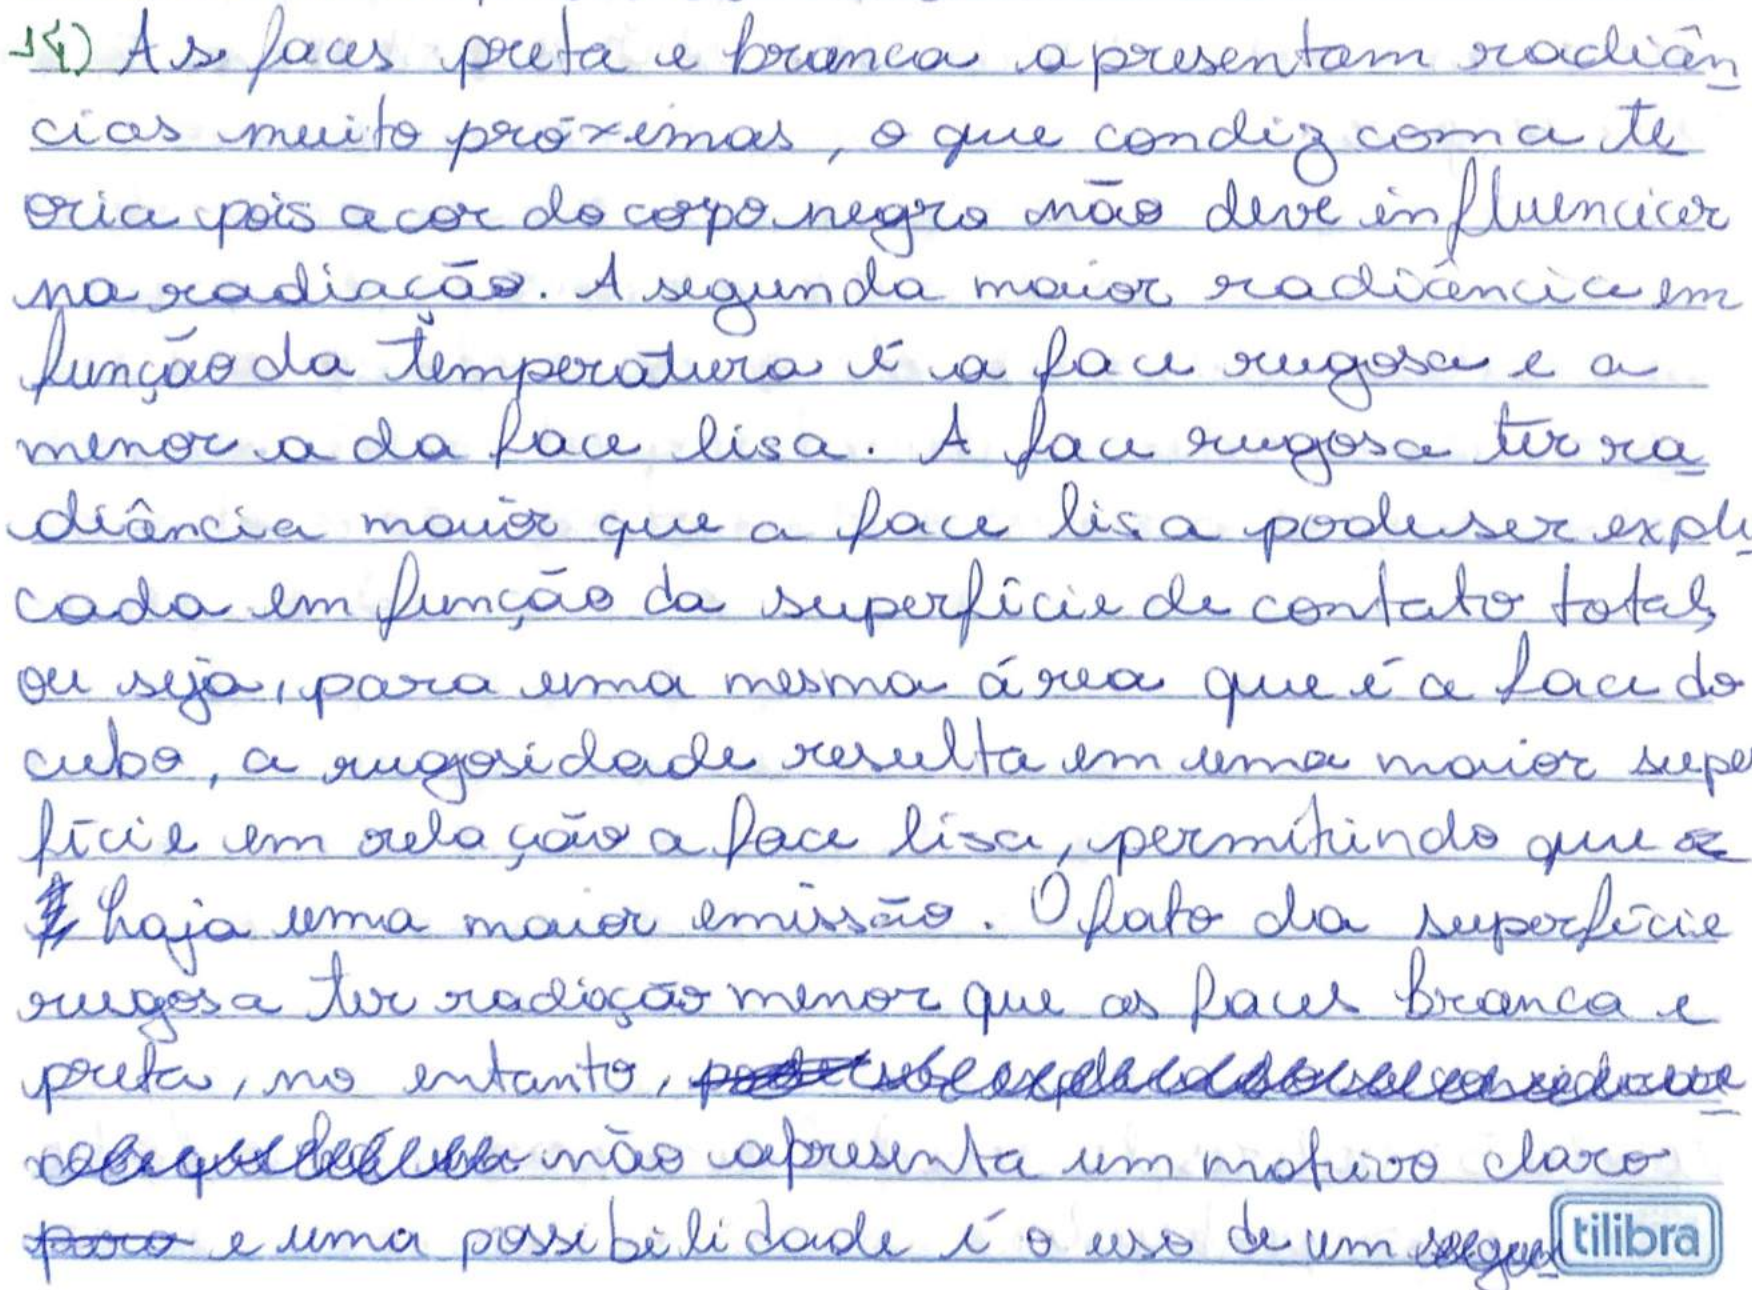 14) As faces preta e branca apresentam radiân
cias muito próximas, o que condiz com a te
oria pois a cor do corpo negro não deve influenciar
na radiação. A segunda maior radiância em
função da temperatura é a face rugosa e a
menor a da face lisa. A face rugosa ter ra
diância maior que a face lisa pode ser expli
cada em função da superfície de contato total,
ou seja, para uma mesma área que é a face do
cubo, a rugosidade resulta em uma maior super
fície em relação a face lisa, permitindo que
haja uma maior emissão. O fato da superfície
rugosa ter radiação menor que as faces branca e
preta, no entanto,
não apresenta um motivo claro
para e uma possibilidade é o uso de um
tilibra